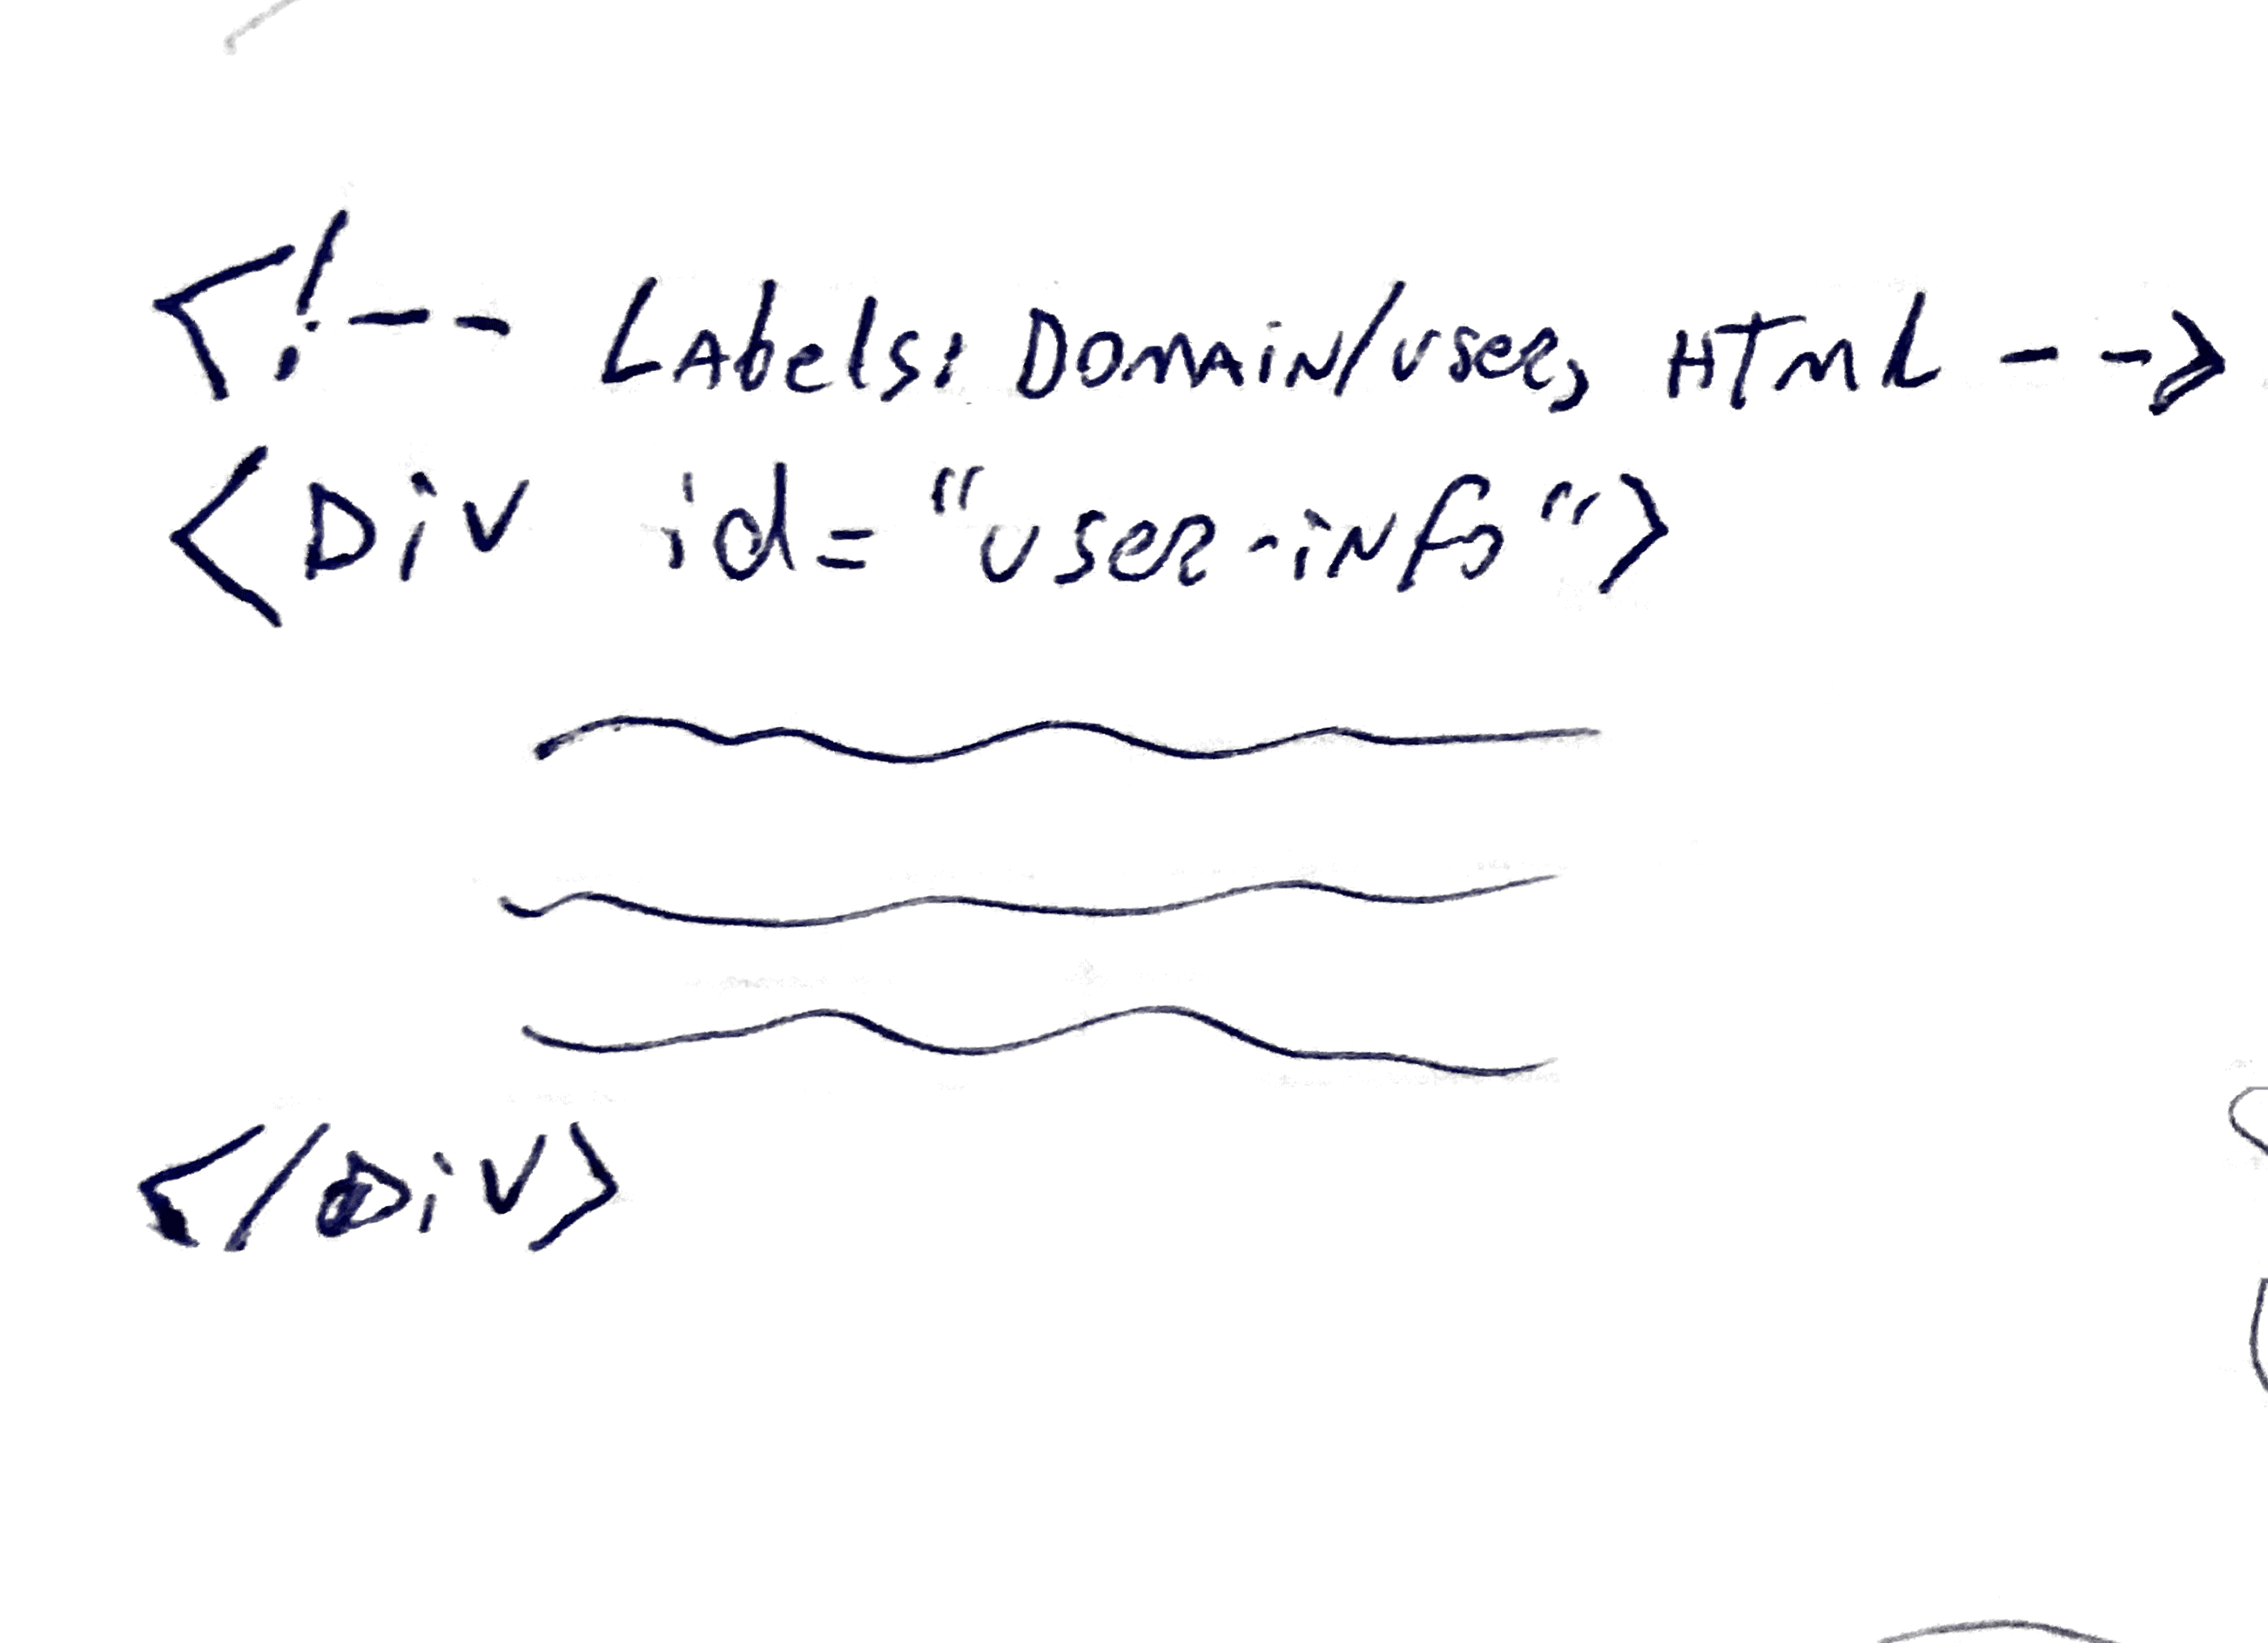 <!-- Labels: Domain/user, HTML -->
<Div id="user-info">
</Div>